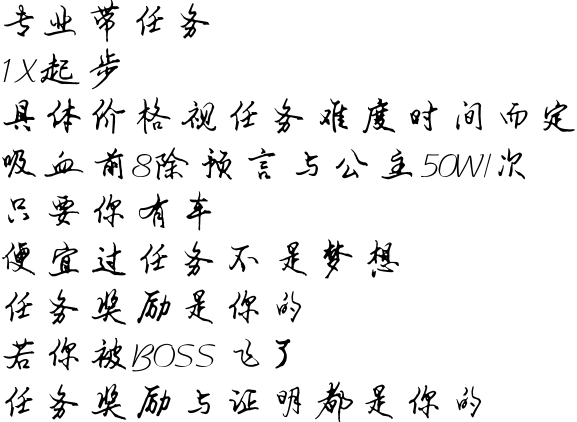 专业带任务
1X起步
具体价格视任务难度时间而定
吸血前8除预言与公主50W/次
只要你有车
便宜过任务不是梦想
任务奖励是你的
若你被BOSS飞了
任务奖励与证明都是你的